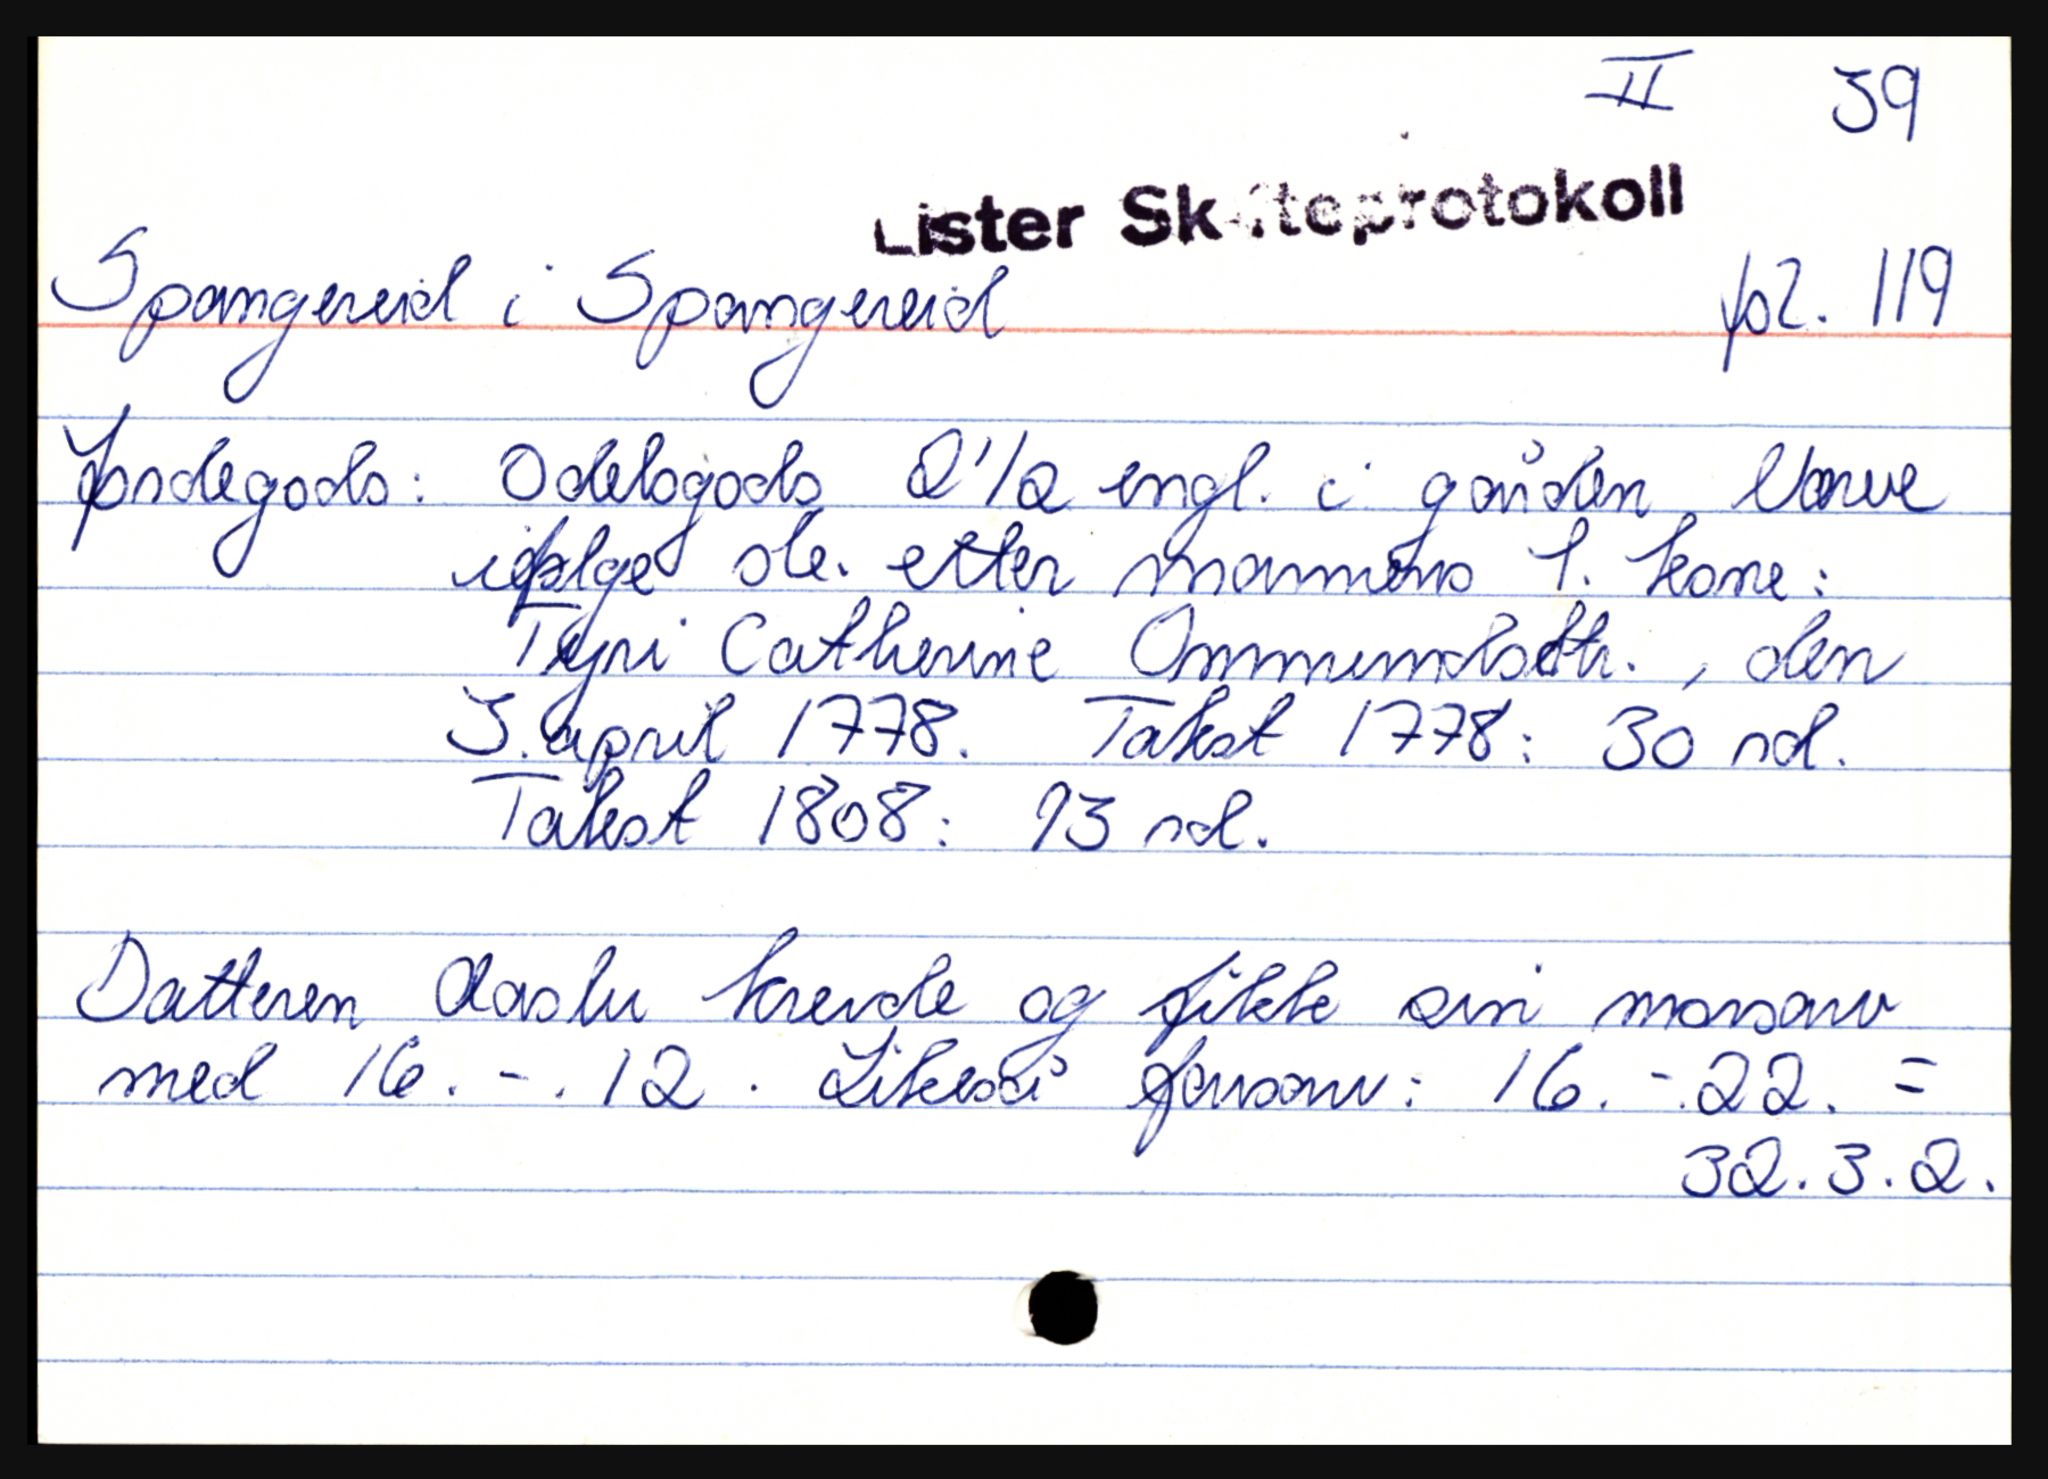 II 39
Lister Skifteprotokoll
Spangereid i Spangereid fol. 119
Jordegods: Odelsgods 2 1/2 engl. i gården Narve
ifølge ske. etter mannens 1. kone:
Tyri Catherine Ommundsdtr., den
3. april 1778. Takst 1778: 30 rd.
Takst 1808: 93 rd.
Datteren Aaslu krevde og fikk sin morsarv
med 16. - . 12. Likeså farsarv: 16. - . 22. =
32. 3. 2.